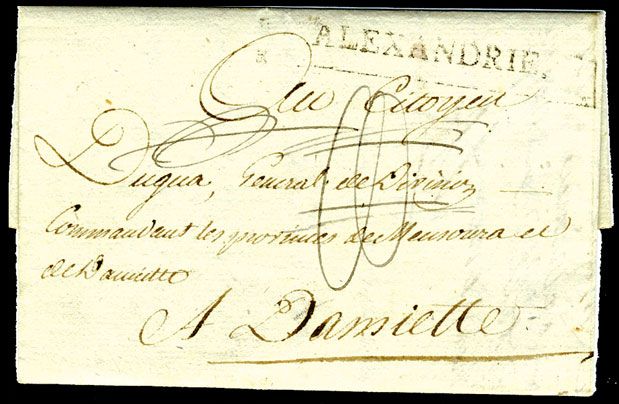 ALEXANDRIE.
Au Citoyen
Dugua, General de Division
Commandant les provinces de Mansoura et
de Damiette
A Damiette